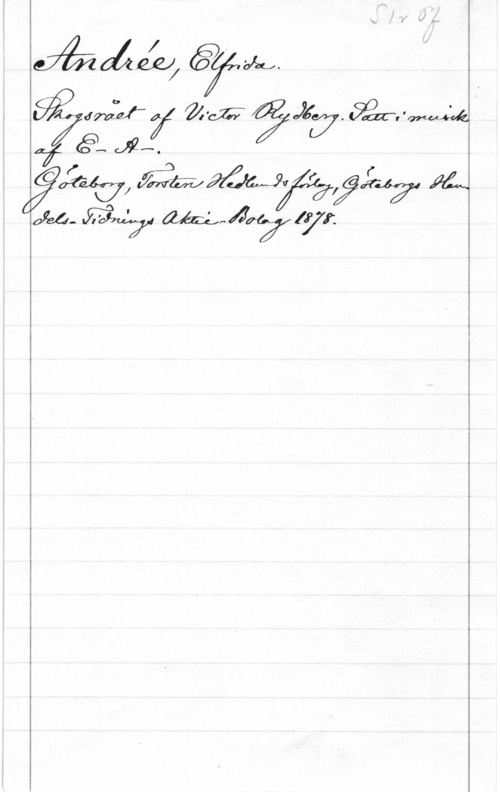 S1r 07
Andrée, Elfrida.
Skogsrået af Victor Rydberg. Satt i musik
af E- A-.
Göteborg, Torsten Hedlunds förlag, Göteborgs Han-
dels-Tidnings Aktie-Bolag 1878.